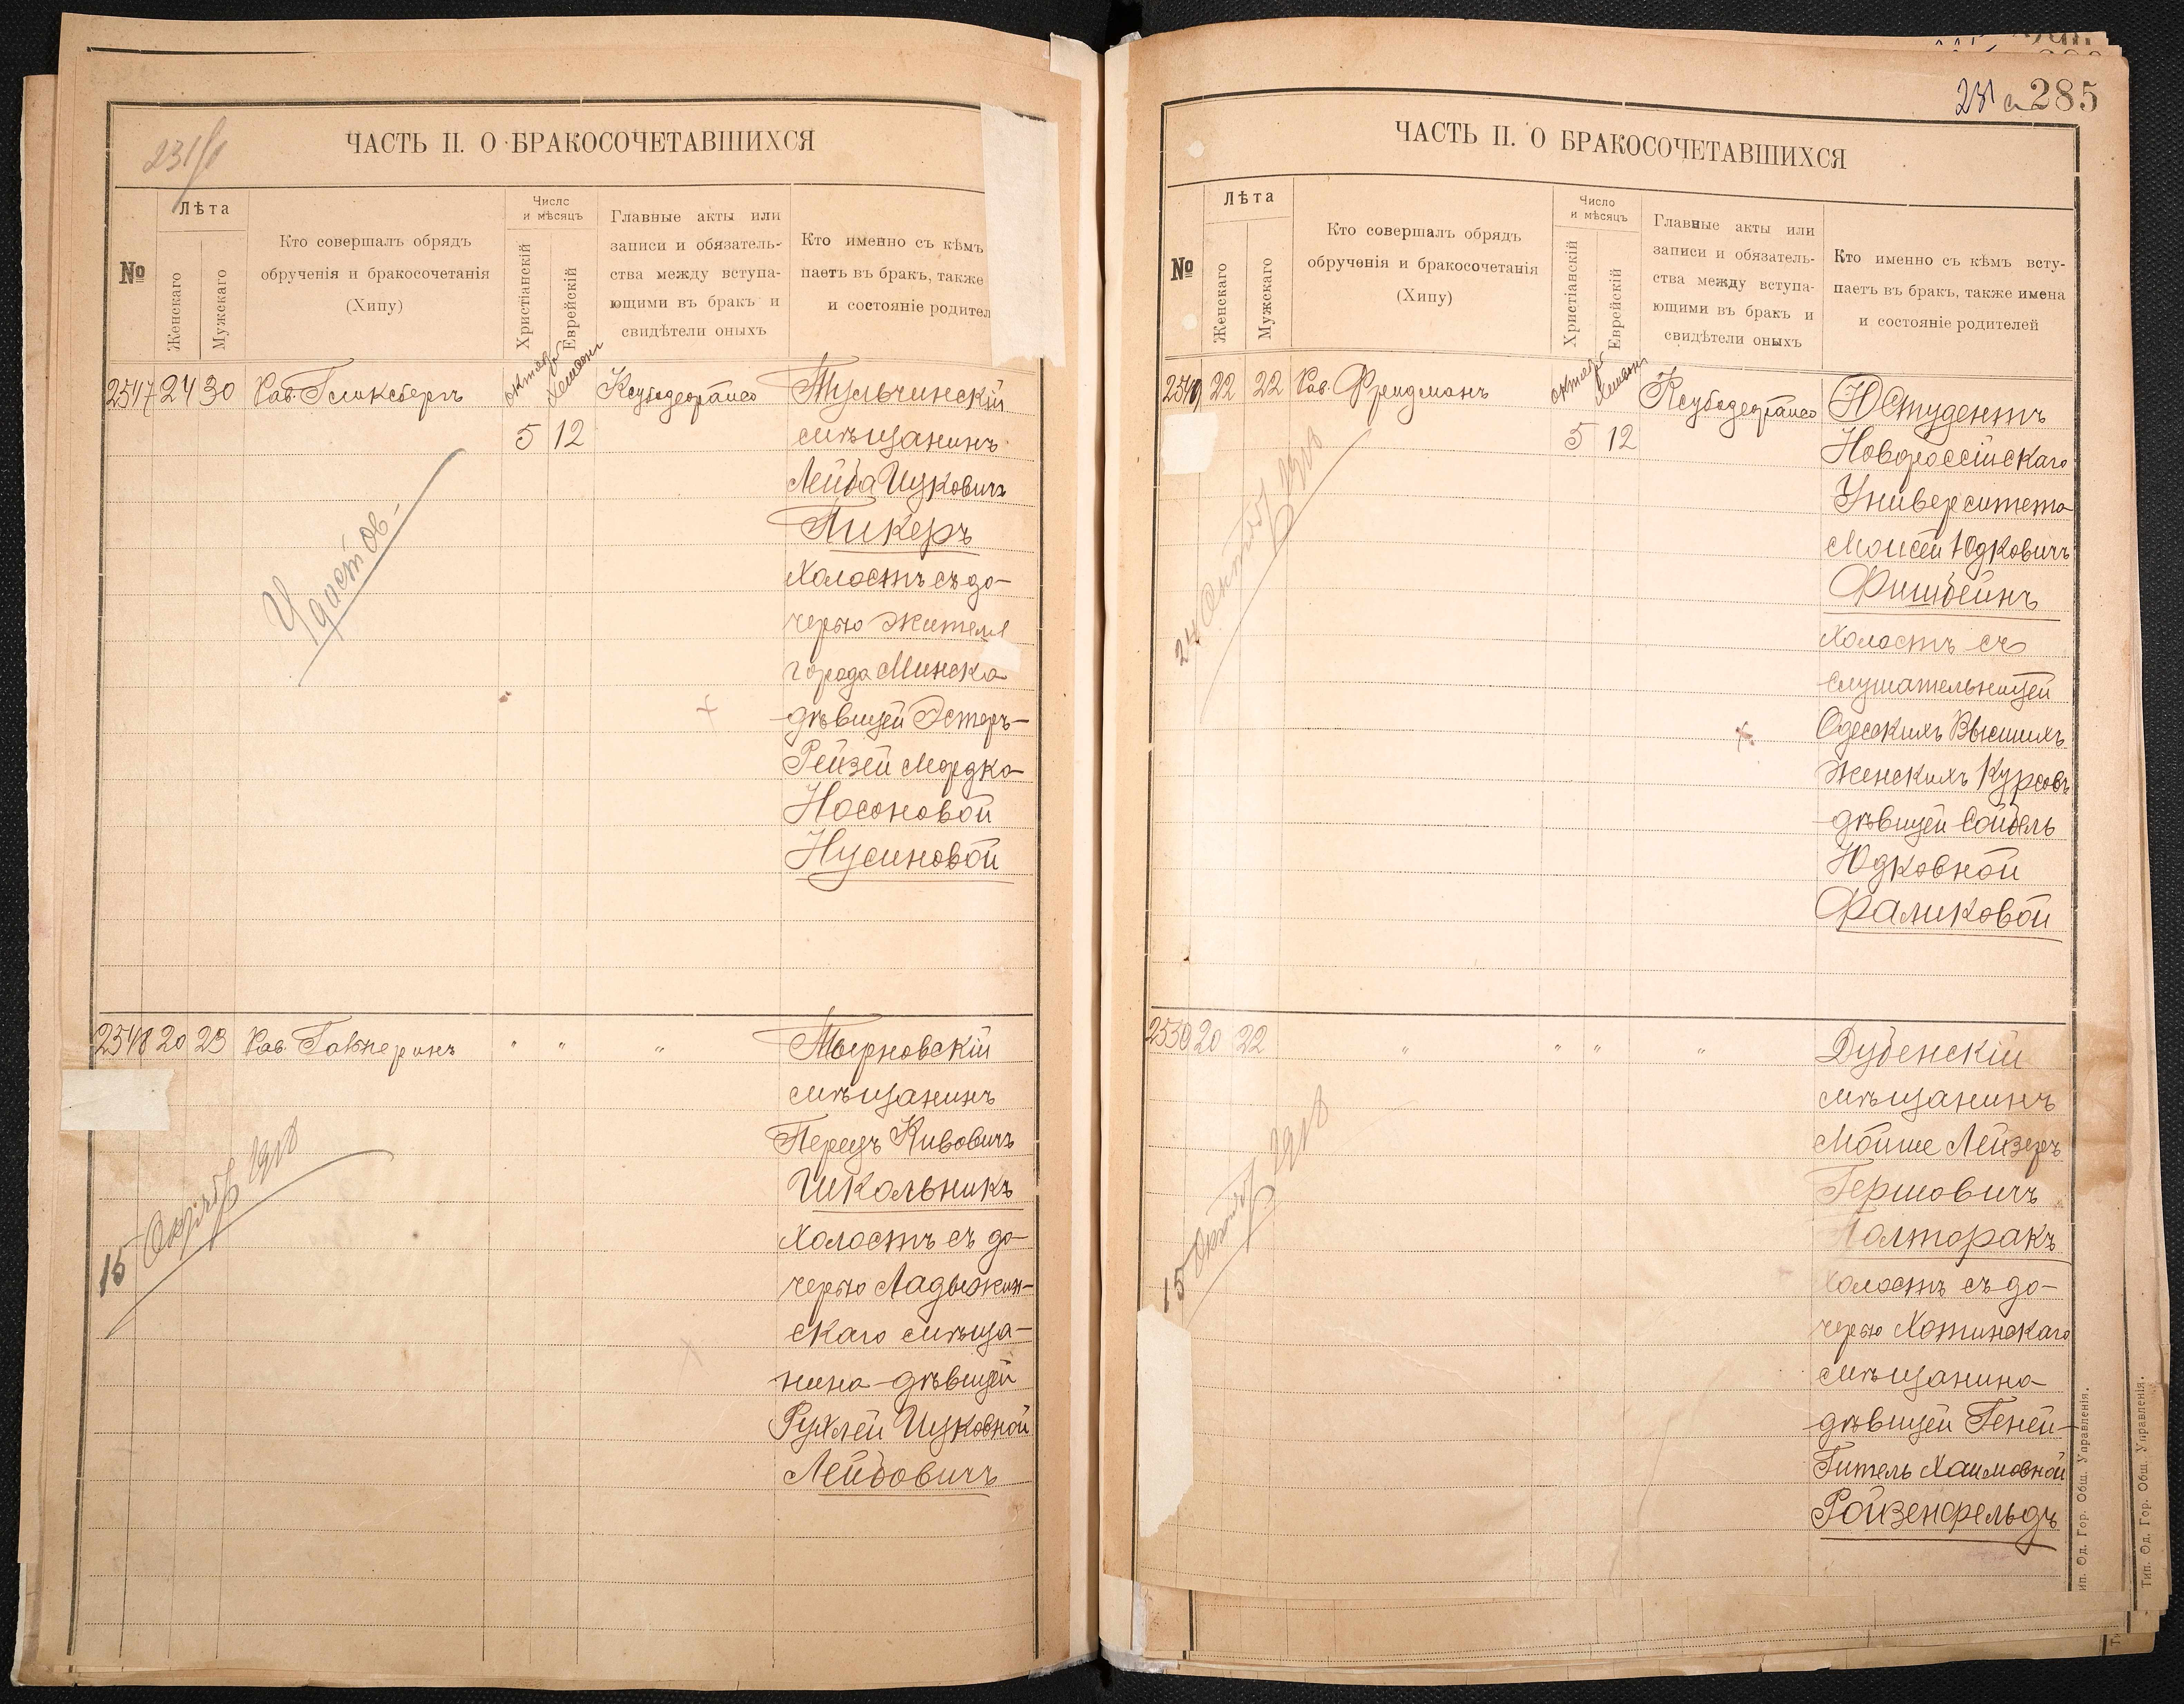 ЧАСТЬ II. О БРАКОСОЧЕТАВШИХСЯ
№
Лѣта
Женскаго
Мужскаго
Кто совершалъ обрядъ
обрученія и бракосочетанія
(Хипу)
Число
и мѣсяцъ
Христіанскій
Еврейскій
Главные акты или
записи и обязатель-
ства между вступа-
ющими въ бракъ и
свидѣтели оныхъ
Кто именно съ кѣмъ
паетъ въ бракъ, также
и состояніе родител
2547 24 30 Рав. Гликсбергъ
5 12
Тульчинскій
мѣщанинъ
Лейба Ицковичъ
Пикеръ
холостъ съ до-
черью жителя
города Минска
дѣвицей Эстеръ-
Рейзей Мордко-
Носоновой
Нусиновой
Удостов-
2548 20 23 Рав. Гальперинъ " " "
Тырновскій
мѣщанинъ
Перецъ Кивовичъ
Школьникъ
холостъ съ до-
черью Ладыжин-
скаго мѣща-
нина дѣвицей
Рухлей Ицковной
Лейбовичъ
15
285
ЧАСТЬ II. О БРАКОСОЧЕТАВШИХСЯ
№
Лѣта
Женскаго
Мужскаго
Кто совершалъ обрядъ
обрученія и бракосочетанія
(Хипу)
Число
и мѣсяцъ
Христіанскій
Еврейскій
Главные акты или
записи и обязатель-
ства между вступа-
ющими въ бракъ и
свидѣтели оныхъ
Кто именно съ кѣмъ всту-
паетъ въ бракъ, также имена
и состояніе родителей
2549 22 22 Рав. Фридманъ
5 12
Студентъ
Новороссійскаго
Университета
Моисей Юдковичъ
Фишбейнъ
холостъ съ
слушательницей
Одесскихъ Высшихъ
Женскихъ Курсовъ
дѣвицей Сойбель
Юдковной
Фаликовой
24
2550 20 22 " " " "
Дубенскій
мѣщанинъ
Мойше Лейзеръ
Гершовичъ
Полторакъ
холостъ съ до-
черью Хотинскаго
мѣщанина
дѣвицей Геней-
Гитель Хаимовной
Ройзенфельдъ
15
ип. Од. Гор. Общ. Управленія.
Тип. Од. Гор. Общ. Управленія.